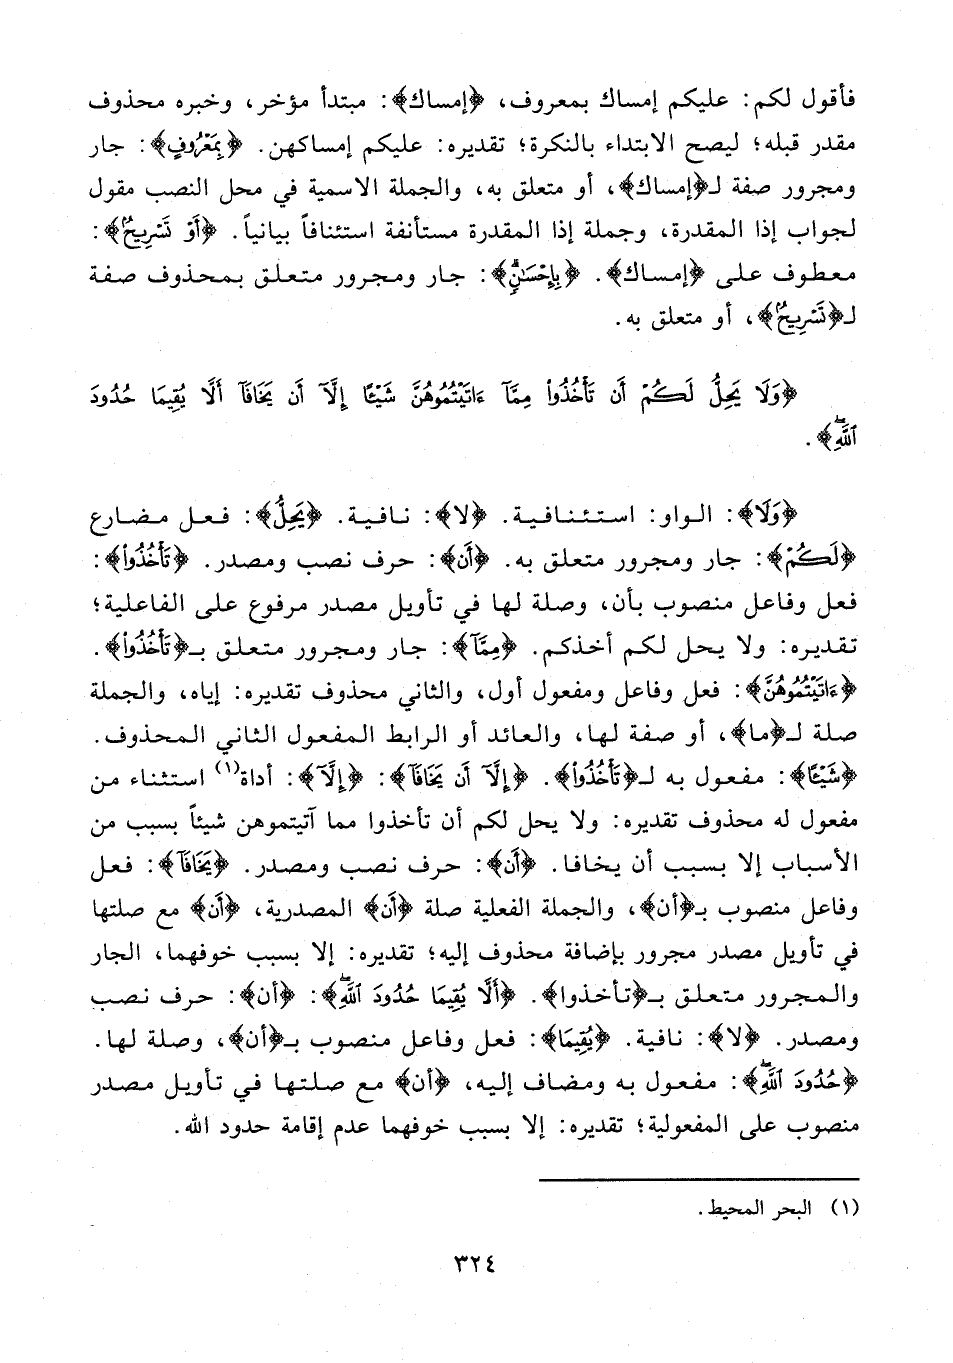 فأقول لكم: عليكم إمساك بمعروف، ﴿إمساك﴾: مبتدأ مؤخر، وخبره محذوف
مقدر قبله؛ ليصح الابتداء بالنكرة؛ تقديره: عليكم إمساكهن. ﴿بِمَعْرُوفٍ﴾: جار
ومجرور صفة لـ﴿إمساك﴾، أو متعلق به، والجملة الاسمية في محل النصب مقول
لجواب إذا المقدرة، وجملة إذا المقدرة مستأنفة استئنافاً بيانياً. ﴿أَوْ تَسْرِيحٌ﴾:
معطوف على ﴿إمساك﴾. ﴿بِإِحْسَٰنٍ﴾: جار ومجرور متعلق بمحذوف صفة
لـ﴿تَسْرِيحٌ﴾، أو متعلق به.
﴿وَلَا يَحِلُّ لَكُمْ أَن تَأْخُذُوا۟ مِمَّآ ءَاتَيْتُمُوهُنَّ شَيْـًٔا إِلَّآ أَن يَخَافَآ أَلَّا يُقِيمَا حُدُودَ
ٱللَّهِۖ﴾.
﴿وَلَا﴾: الواو: استئنافية. ﴿لا﴾: نافية. ﴿يَحِلُّ﴾: فعل مضارع
﴿لَكُمْ﴾: جار ومجرور متعلق به. ﴿أَن﴾: حرف نصب ومصدر. ﴿تَأْخُذُوا۟﴾:
فعل وفاعل منصوب بأن، وصلة لها في تأويل مصدر مرفوع على الفاعلية؛
تقديره: ولا يحل لكم أخذكم. ﴿مِمَّآ﴾: جار ومجرور متعلق بـ﴿تَأْخُذُوا۟﴾.
﴿ءَاتَيْتُمُوهُنَّ﴾: فعل وفاعل ومفعول أول، والثاني محذوف تقديره: إياه، والجملة
صلة لـ﴿ما﴾، أو صفة لها، والعائد أو الرابط المفعول الثاني المحذوف.
﴿شَيْـًٔا﴾: مفعول به لـ﴿تَأْخُذُوا۟﴾. ﴿إِلَّآ أَن يَخَافَآ﴾: ﴿إِلَّآ﴾: أداة(١) استثناء من
مفعول له محذوف تقديره: ولا يحل لكم أن تأخذوا مما آتيتموهن شيئاً بسبب من
الأسباب إلا بسبب أن يخافا. ﴿أَن﴾: حرف نصب ومصدر. ﴿يَخَافَآ﴾: فعل
وفاعل منصوب بـ﴿أن﴾، والجملة الفعلية صلة ﴿أن﴾ المصدرية، ﴿أن﴾ مع صلتها
في تأويل مصدر مجرور بإضافة محذوف إليه؛ تقديره: إلا بسبب خوفهما، الجار
والمجرور متعلق بـ﴿تأخذوا﴾. ﴿أَلَّا يُقِيمَا حُدُودَ ٱللَّهِۖ﴾: ﴿أن﴾: حرف نصب
ومصدر. ﴿لا﴾: نافية. ﴿يُقِيمَا﴾: فعل وفاعل منصوب بـ﴿أن﴾، وصلة لها.
﴿حُدُودَ ٱللَّهِۖ﴾: مفعول به ومضاف إليه، ﴿أن﴾ مع صلتها في تأويل مصدر
منصوب على المفعولية؛ تقديره: إلا بسبب خوفهما عدم إقامة حدود الله.
(١) البحر المحيط.
٣٢٤